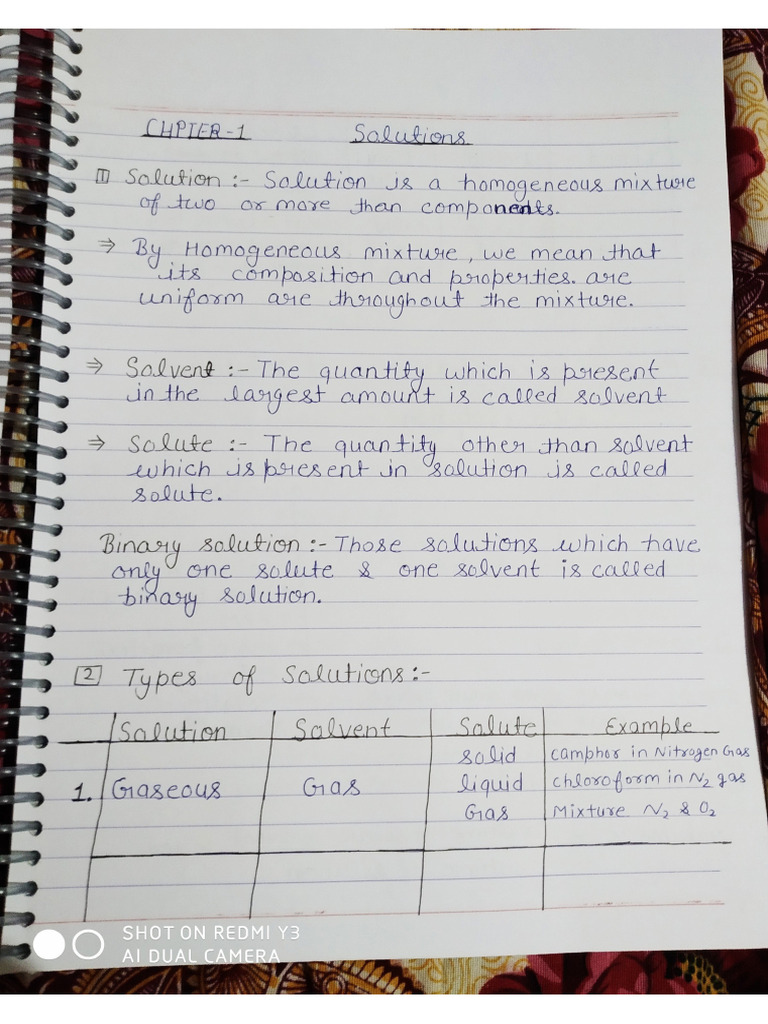 CHPTER-1 Solutions
1 Solution :- Solution is a homogeneous mixture
of two or more than components.
⇒ By Homogeneous mixture, we mean that
its composition and properties. are
uniform are throughout the mixture.
⇒ Solvent :- The quantity which is present
in the largest amount is called solvent
⇒ Solute :- The quantity other than solvent
which is present in solution is called
solute.
Binary solution :- Those solutions which have
only one solute & one solvent is called
binary solution.
2 Types of Solutions :-
Solution Solvent Solute Example
solid camphor in Nitrogen Gas
1. Gaseous Gas liquid chloroform in N₂ gas
Gas Mixture N₂ & O₂
SHOT ON REDMI Y3
AI DUAL CAMERA